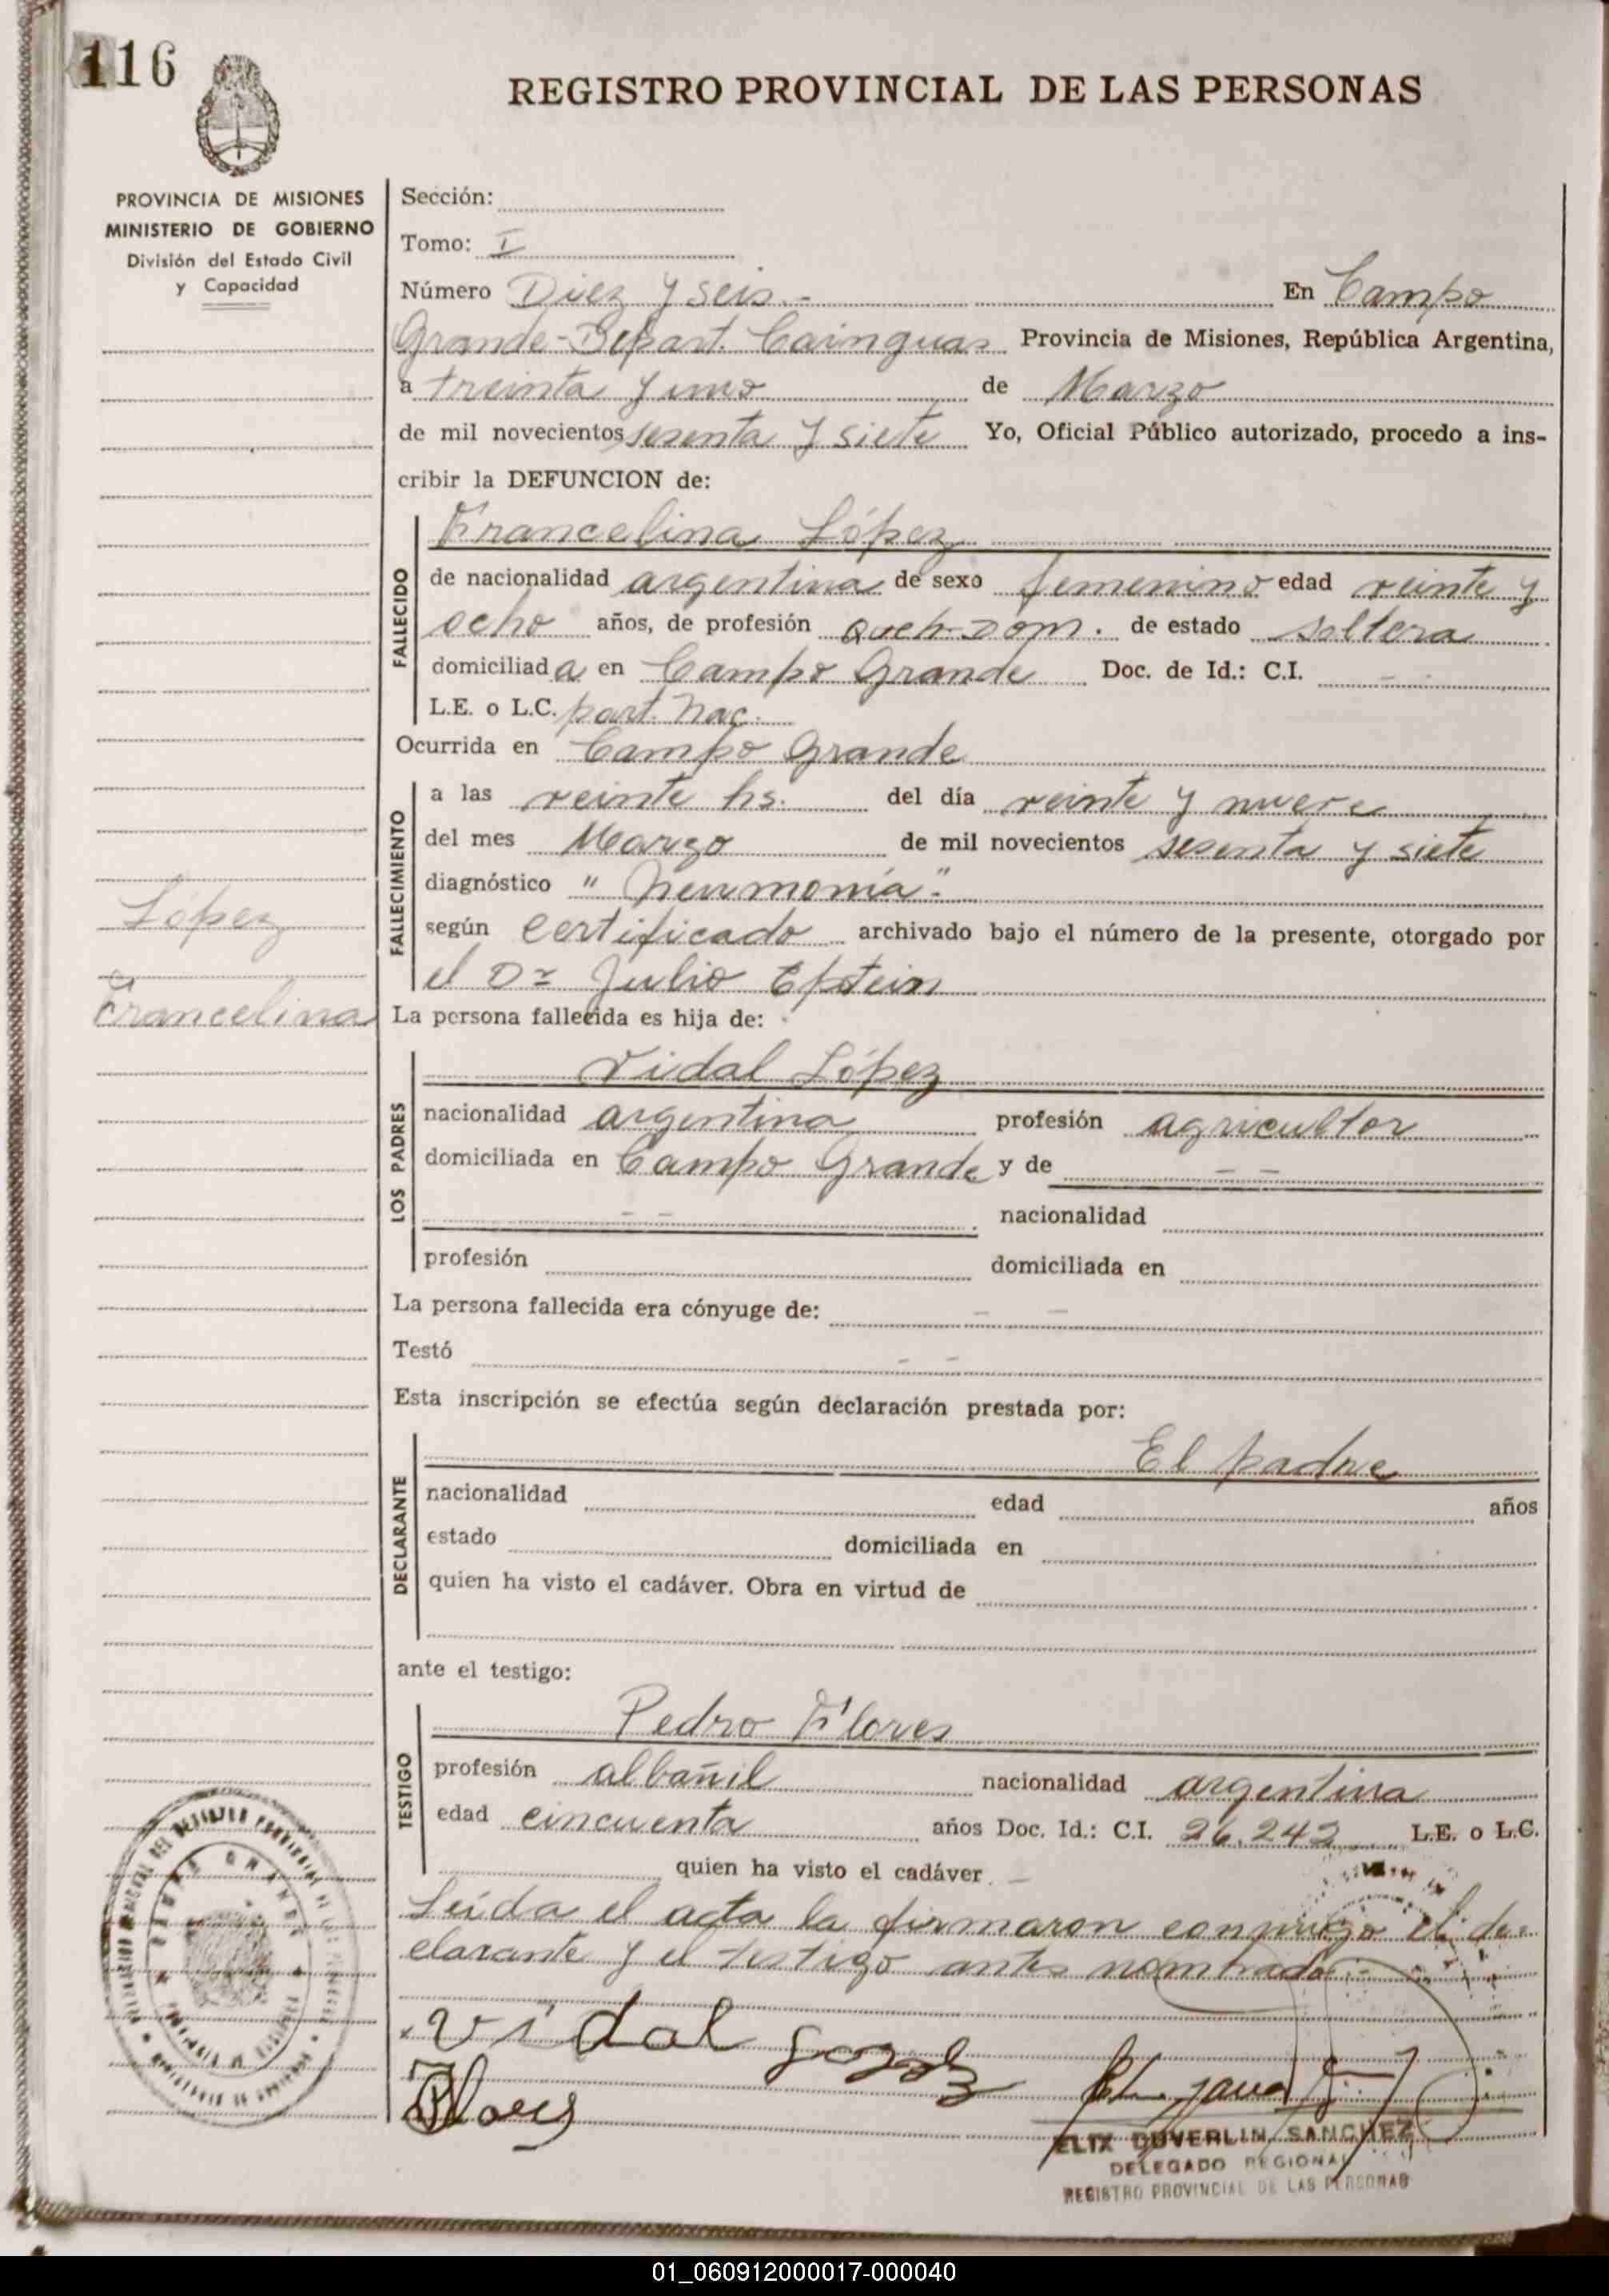 116
REGISTRO PROVINCIAL DE LAS PERSONAS
PROVINCIA DE MISIONES
MINISTERIO DE GOBIERNO
División del Estado Civil
y Capacidad
Sección:
Tomo: I
Número Diez y seis.- En Campo
Grande-Depart. Cainguas Provincia de Misiones, República Argentina,
a treinta y uno de Marzo
de mil novecientos sesenta y siete Yo, Oficial Público autorizado, procedo a ins-
cribir la DEFUNCION de:
Francelina López
FALLECIDO
de nacionalidad argentina de sexo femenino edad veinte y
ocho años, de profesión queh. Dom. de estado soltera
domiciliada en Campo Grande Doc. de Id.: C.I. -
L.E. o L.C. part. nac.
Ocurrida en Campo Grande
FALLECIMIENTO
a las veinte hs. del día veinte y nueve
del mes Marzo de mil novecientos sesenta y siete
diagnóstico "Neumonía".
según certificado archivado bajo el número de la presente, otorgado por
el Dr Julio Epstein
López
Francelina
La persona fallecida es hija de:
Vidal López
LOS PADRES
nacionalidad argentina profesión agricultor
domiciliada en Campo Grande y de - -
- - nacionalidad
profesión domiciliada en
La persona fallecida era cónyuge de: - -
Testó - -
Esta inscripción se efectúa según declaración prestada por:
El padre
DECLARANTE
nacionalidad edad años
estado domiciliada en
quien ha visto el cadáver. Obra en virtud de
ante el testigo:
Pedro Flores
TESTIGO
profesión albañil nacionalidad argentina
edad cincuenta años Doc. Id.: C.I. 26.242 L.E. o L.C.
quien ha visto el cadáver. -
Leída el acta la firmaron conmigo el de-
clarante y el testigo antes nombrado.-
Vidal Lopez
Flores
ELIX DUVERLIN SANCHEZ
DELEGADO REGIONAL
REGISTRO PROVINCIAL DE LAS PERSONAS
01_060912000017-000040